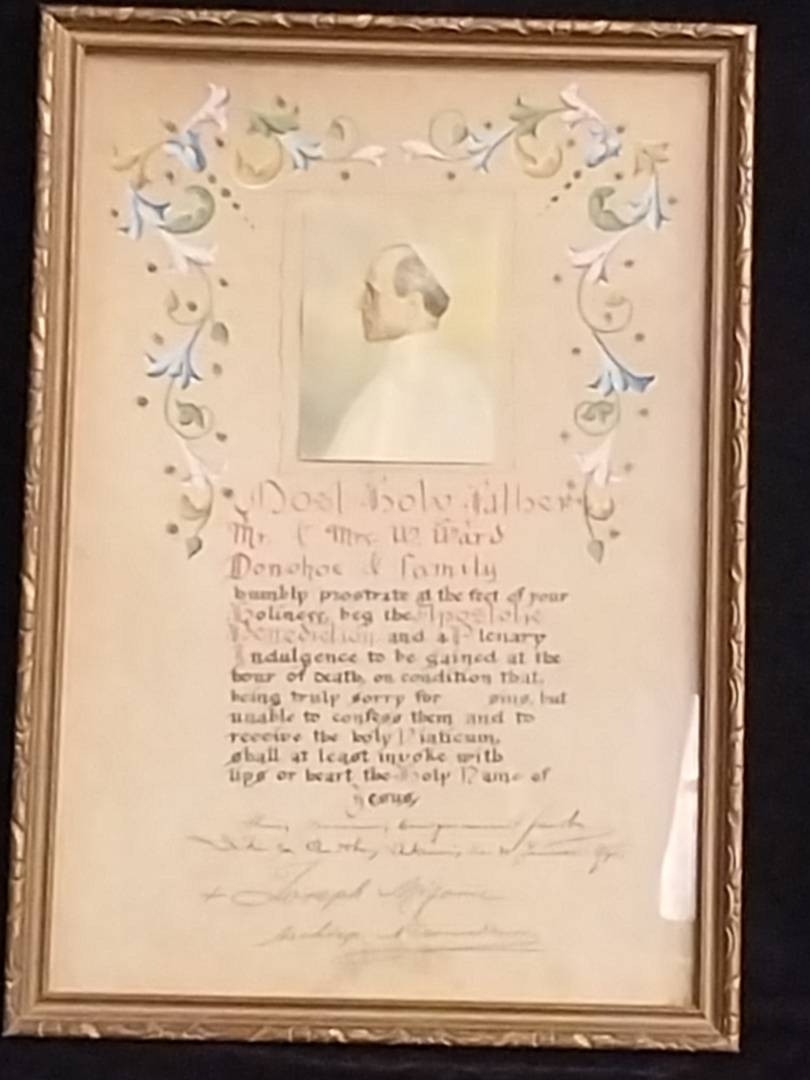 Most Holy Father
Mr. & Mrs. W. Ward
Donohoe & family
humbly prostrate at the feet of your
Holiness, beg the Apostolic
Benediction and a Plenary
Indulgence to be gained at the
hour of Death, on condition that,
being truly sorry for sins, but
unable to confess them and to
receive the holy Viaticum,
shall at least invoke with
lips or heart the Holy Name of
Jesus,
+ Joseph